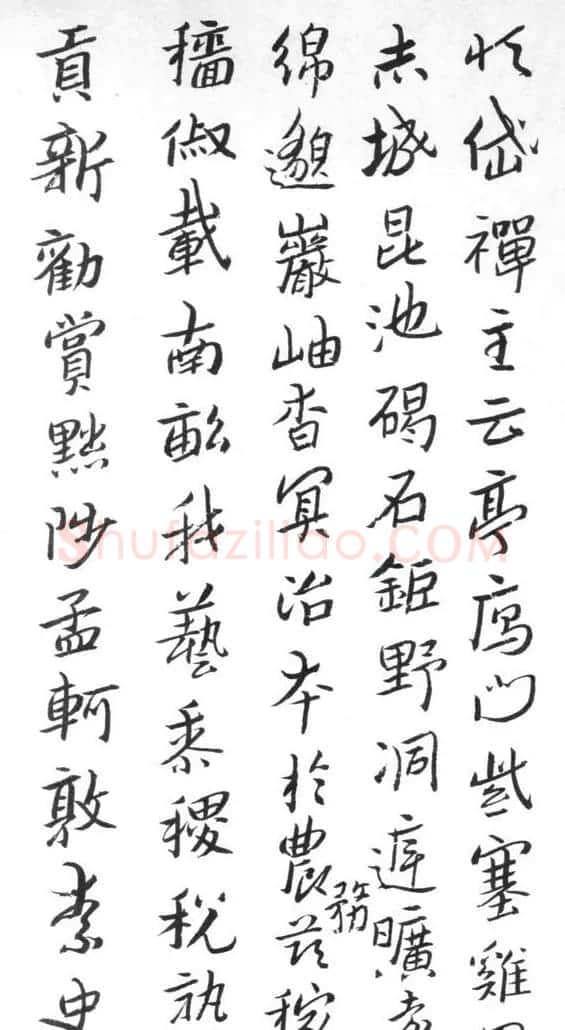 恒岱禪主云亭鴈門紫塞雞
赤城昆池碣石鉅野洞庭曠遠
綿邈巖岫杳冥治本於農務茲稼
穡俶載南畝我藝黍稷稅熟
貢新勸賞黜陟孟軻敦素史
Shufaziliao.COM